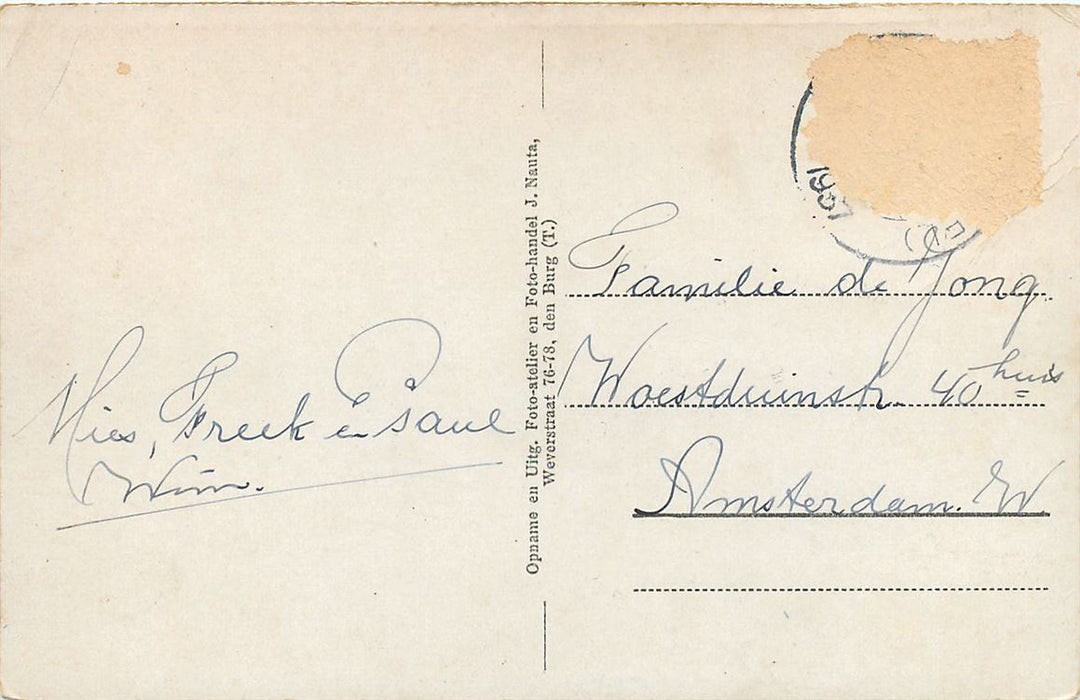 Mies, Freek en Paul
Wim.
Opname en Uitg. Foto-atelier en Foto-handel J. Nauta,
Weverstraat 76-78, den Burg (T.)
Familie de Jong.
Woestduinstr. 40 huis
Amsterdam. W.